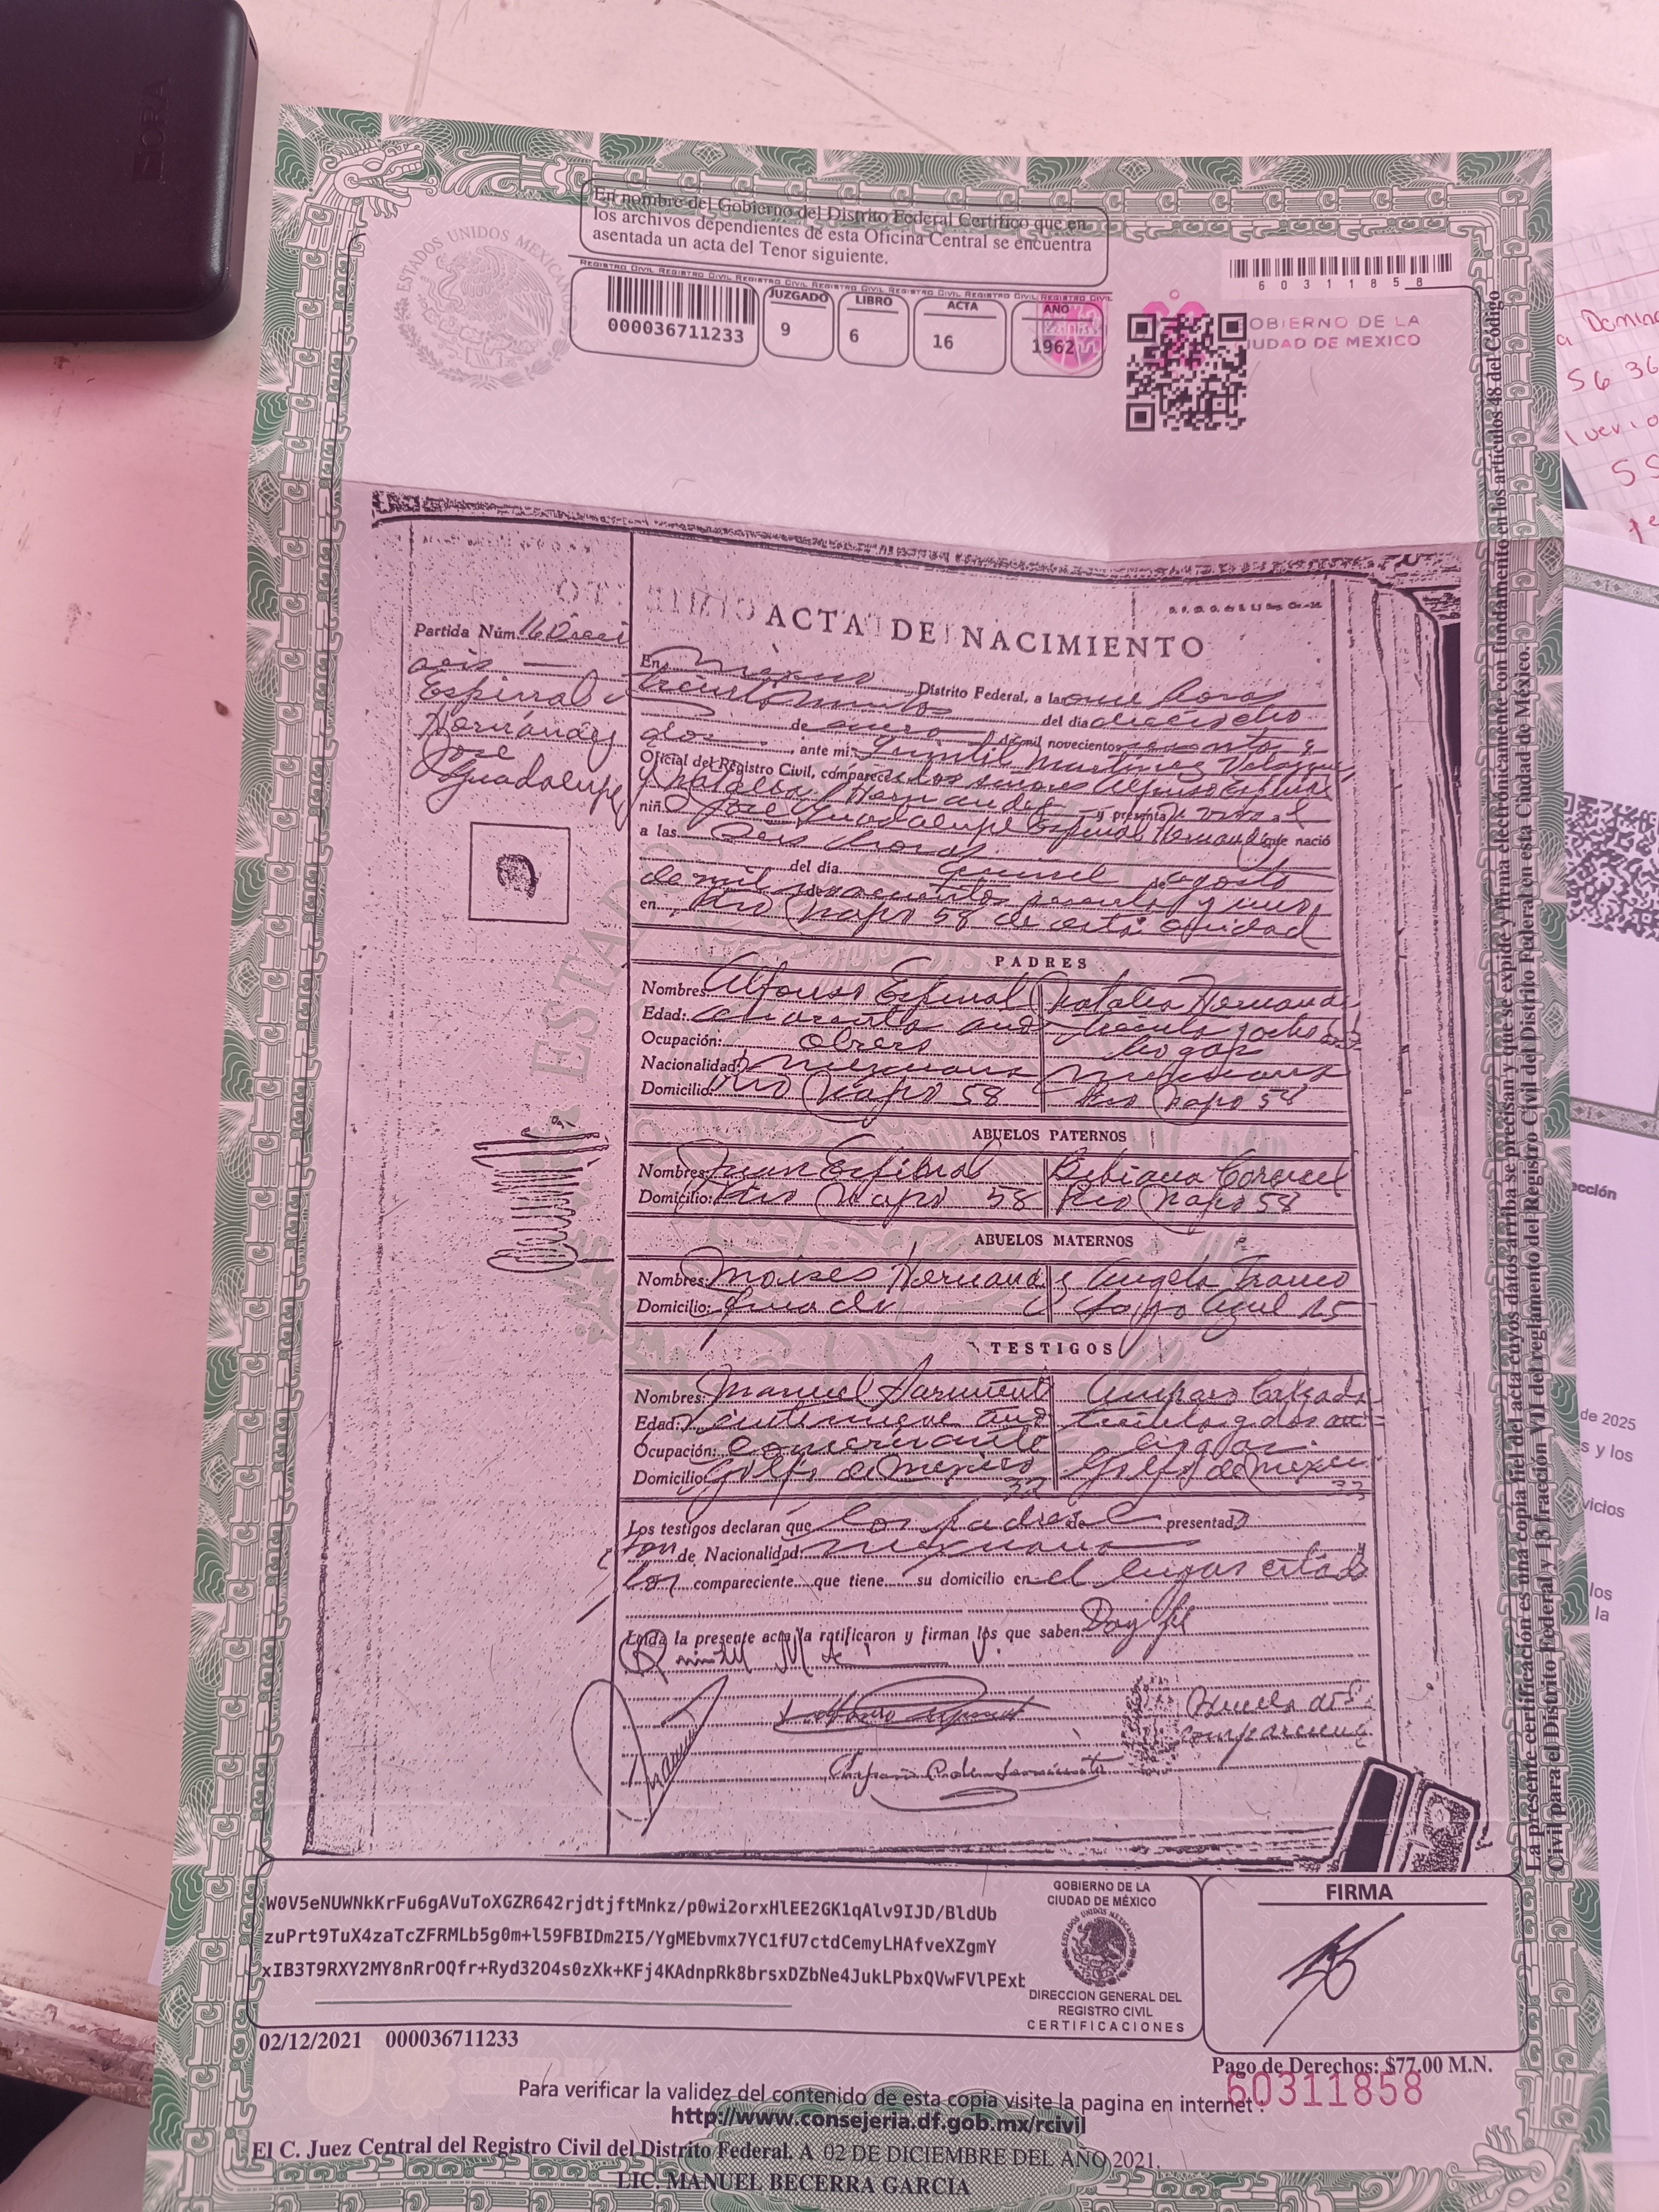 En nombre del Gobierno del Distrito Federal Certifico que en
los archivos dependientes de esta Oficina Central se encuentra
asentada un acta del Tenor siguiente.
ESTADOS UNIDOS MEXICANOS
REGISTRO CIVIL REGISTRO CIVIL REGISTRO CIVIL REGISTRO CIVIL REGISTRO CIVIL
000036711233
JUZGADO
9
LIBRO
6
ACTA
16
AÑO
1962
60311858
OBIERNO DE LA
IUDAD DE MEXICO
ACTA DE NACIMIENTO
Partida Núm. 16 Dieci
seis
Espinal
Hernández
José
Guadalupe
En México Distrito Federal, a las once horas
treinta minutos del dia dieciocho
de enero de mil novecientos sesenta y
dos, ante mi: Quintil Martínez Velazquez
Oficial del Registro Civil, comparecen los señores Alfonso Espinal
y Natalia Hernandez y presentan vivo al
niño José Guadalupe Espinal Hernandez que nació
a las seis horas
del día de agosto
de mil novecientos sesenta y uno
en Rio Napo 58 de esta Ciudad
PADRES
Nombres: Alfonso Espinal Natalia Hernande
Edad: cuarenta años treinta y ocho
Ocupación: obrero hogar
Nacionalidad: mexicana mexicana
Domicilio: Rio Napo 58 Rio Napo 58
ABUELOS PATERNOS
Nombres: Juan Espinal Bibiana Coronel
Domicilio: Rio Napo 58 Rio Napo 58
ABUELOS MATERNOS
Nombres: Moises Hernandez Angela Franco
Domicilio: Lago 25
TESTIGOS
Nombres: Manuel Sarmient Amparo Calzada
Edad: años treinta y dos
Ocupación: comerciante hogar
Domicilio: Golfo de Mexico 32 Golfo de Mexico
Los testigos declaran que los padres del presentado
son de Nacionalidad mexicana y
los compareciente que tiene su domicilio en el lugar citado
Leída la presente acta la ratificaron y firman los que saben. Doy fé
Huella de
compareciente
W0V5eNUWNkKrFu6gAVuToXGZR642rjdtjftMnkz/p0wi2orxHlEE2GK1qAlv9IJD/BldUb
zuPrt9TuX4zaTcZFRMLb5g0m+l59FBIDm2I5/YgMEbvmx7YC1fU7ctdCemyLHAfveXZgmY
xIB3T9RXY2MY8nRrOQfr+Ryd32O4s0zXk+KFj4KAdnpRk8brsxDZbNe4JukLPbxQVwFVlPExt
GOBIERNO DE LA
CIUDAD DE MÉXICO
ESTADOS UNIDOS MEXICANOS
DIRECCION GENERAL DEL
REGISTRO CIVIL
CERTIFICACIONES
FIRMA
02/12/2021 000036711233
Pago de Derechos: $77.00 M.N.
60311858
Para verificar la validez del contenido de esta copia visite la pagina en internet :
http://www.consejeria.df.gob.mx/rcivil
El C. Juez Central del Registro Civil del Distrito Federal. A 02 DE DICIEMBRE DEL AÑO 2021.
LIC. MANUEL BECERRA GARCIA
La presente certificación es una copia fiel del acta cuyos datos arriba se precisan y que se expide y firma electrónicamente con fundamento en los artículos 48 del Código
Civil para el Distrito Federal y 13 fracción VII del reglamento del Registro Civil del Distrito Federal en esta Ciudad de México.
Domin
56 36
55
ección
de 2025
s y los
vicios
los
la